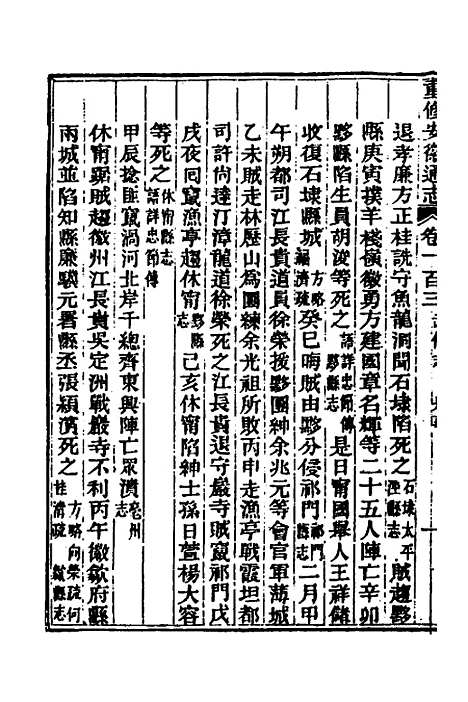 重修安徽通志 卷一百三 武備志
退孝廉方正桂詵守魚龍洞聞石埭陷死之石埭太平涇縣志賊趨黟
縣庚寅撲羊棧嶺徽勇方建國章名輝等二十五人陣亡辛卯
黟縣陷生員胡浚等死之語詳忠節傳黟縣志是日甯國舉人王祥儲
收復石埭縣城方略福濟疏癸巳晦賊由黟分侵祁門祁門縣志二月甲
午朔都司江長貴道員徐榮援黟團紳余兆元等會官軍薄城
乙未賊走林歷山為團練余光祖所敗丙申走漁亭戰霞坦都
司許尚達汀漳龍道徐榮死之江長貴退守巖寺賊竄祁門戊
戌夜囘竄漁亭趨休甯黟縣志己亥休甯陷紳士孫日萱楊大容
等死之休甯縣志語詳忠節傳
甲辰捻匪竄渦河北岸千總齊東興陣亡眾潰亳州志
休甯踞賊趨徽州江長貴吳定洲戰巖寺不利丙午徽歙府縣
兩城並陷知縣廉驥元署縣丞張穎濱死之方略向榮疏何桂清疏歙縣志